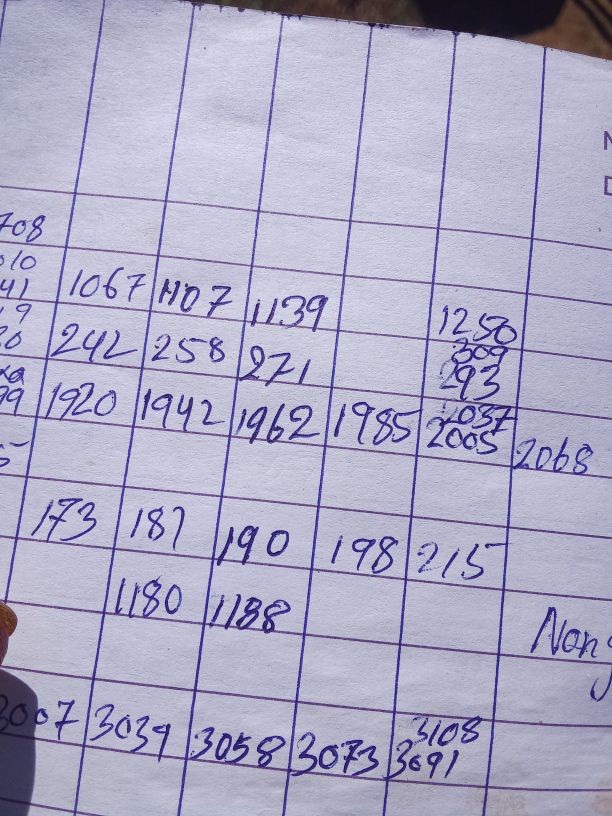 708
1067 1107 1139 1250
242 258 271 309
293
1920 1942 1962 1985 2037
2005 2068
173 187 190 198 215
1180 1188
3007 3039 3058 3073 3108
3091